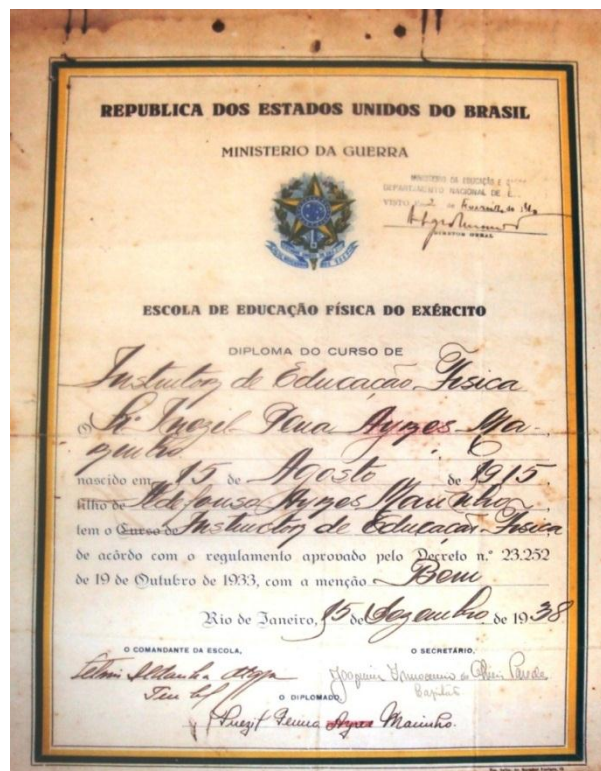 REPUBLICA DOS ESTADOS UNIDOS DO BRASIL
MINISTERIO DA GUERRA
MINISTERIO DA EDUCAÇÃO E
DEPARTAMENTO NACIONAL DE E.
VISTO Em 2 de Fevereiro de
DIRETOR GERAL
ESCOLA DE EDUCAÇÃO FÍSICA DO EXÉRCITO
DIPLOMA DO CURSO DE
Instructor de Educação Fisica
O Sr. Inezil Penna Ayres Ma-
rinho
nascido em 15 de Agosto de 1915,
filho de Ildefonso Ayres Marinho
tem o Curso de Instructor de Educação Fisica
de acôrdo com o regulamento aprovado pelo Decreto n.° 23.252
de 19 de Outubro de 1933, com a menção Bom
Rio de Janeiro, 15 de Dezembro de 1938
O COMANDANTE DA ESCOLA,
O SECRETÁRIO,
Ten Cel
Joaquim
Capitão
O DIPLOMADO,
Inezil Penna Ayres Marinho.